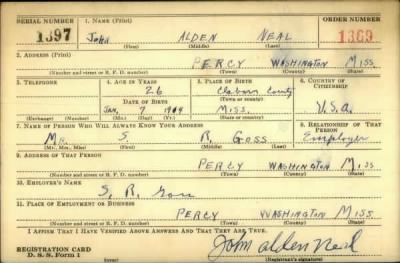 SERIAL NUMBER 1. NAME (Print) ORDER NUMBER
1397 John ALDEN NEAL 1369
(First) (Middle) (Last)
2. ADDRESS (Print)
PERCY WASHINGTON MISS
(Number and street or R. F. D. number) (Town) (County) (State)
3. TELEPHONE 4. AGE IN YEARS 5. PLACE OF BIRTH 6. COUNTRY OF CITIZENSHIP
26 County
DATE OF BIRTH (Town or county)
JAN. 7 1914 MISS. U.S.A.
(Exchange) (Number) (Mo.) (Day) (Yr.) (State or country)
7. NAME OF PERSON WHO WILL ALWAYS KNOW YOUR ADDRESS 8. RELATIONSHIP OF THAT PERSON
MR. S R. GOSS Employer
(Mr., Mrs., Miss) (First) (Middle) (Last)
9. ADDRESS OF THAT PERSON
PERCY WASHINGTON MISS
(Number and street or R. F. D. number) (Town) (County) (State)
10. EMPLOYER'S NAME
S. R. Goss
11. PLACE OF EMPLOYMENT OR BUSINESS
PERCY WASHINGTON MISS.
(Number and street or R. F. D. number) (Town) (County) (State)
I AFFIRM THAT I HAVE VERIFIED ABOVE ANSWERS AND THAT THEY ARE TRUE.
REGISTRATION CARD John Alden Neal
D. S. S. Form 1 (Registrant's signature)